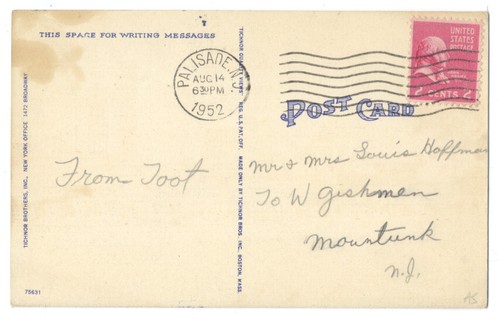 THIS SPACE FOR WRITING MESSAGES
UNITED
STATES
POSTAGE
2 CENTS 2
PALISADE, N.J.
AUG 14
6 30 PM
1952
POST CARD
From Toot
Mr & Mrs Louis Hoffman
To W Gishman
N.J.
TICHNOR BROTHERS, INC., NEW YORK OFFICE 1472 BROADWAY
TICHNOR QUALITY VIEWS REG. U. S. PAT. OFF. MADE ONLY BY TICHNOR BROS. INC. BOSTON, MASS.
75631
AS